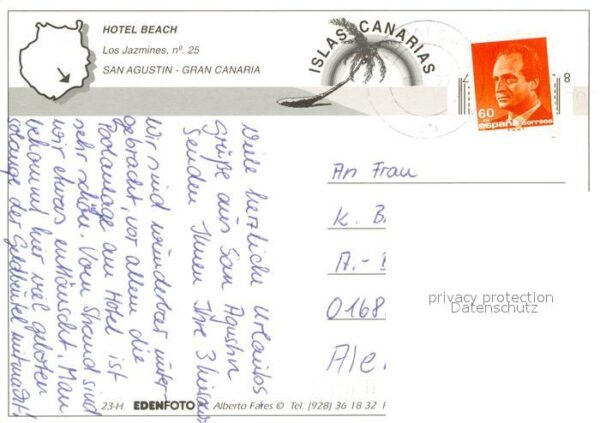 HOTEL BEACH
Los Jazmines, nº. 25
SAN AGUSTIN - GRAN CANARIA
ISLAS CANARIAS
60
españa correos
Viele herzliche Urlaubs
grüße aus San Agustin
senden Ihnen Ihre
Wir sind wunderbar unter-
gebracht, vor allem die
Poolanlage am Hotel ist
sehr schön. Vom Strand sind
wir etwas enttäuscht. Man
bekommt hier viel geboten
solange der Geldbeutel mitmacht!
An Frau
K. B.
A.-
0168
Ale
privacy protection
Datenschutz
23-H EDENFOTO Alberto Fares © Tel. (928) 36 18 32